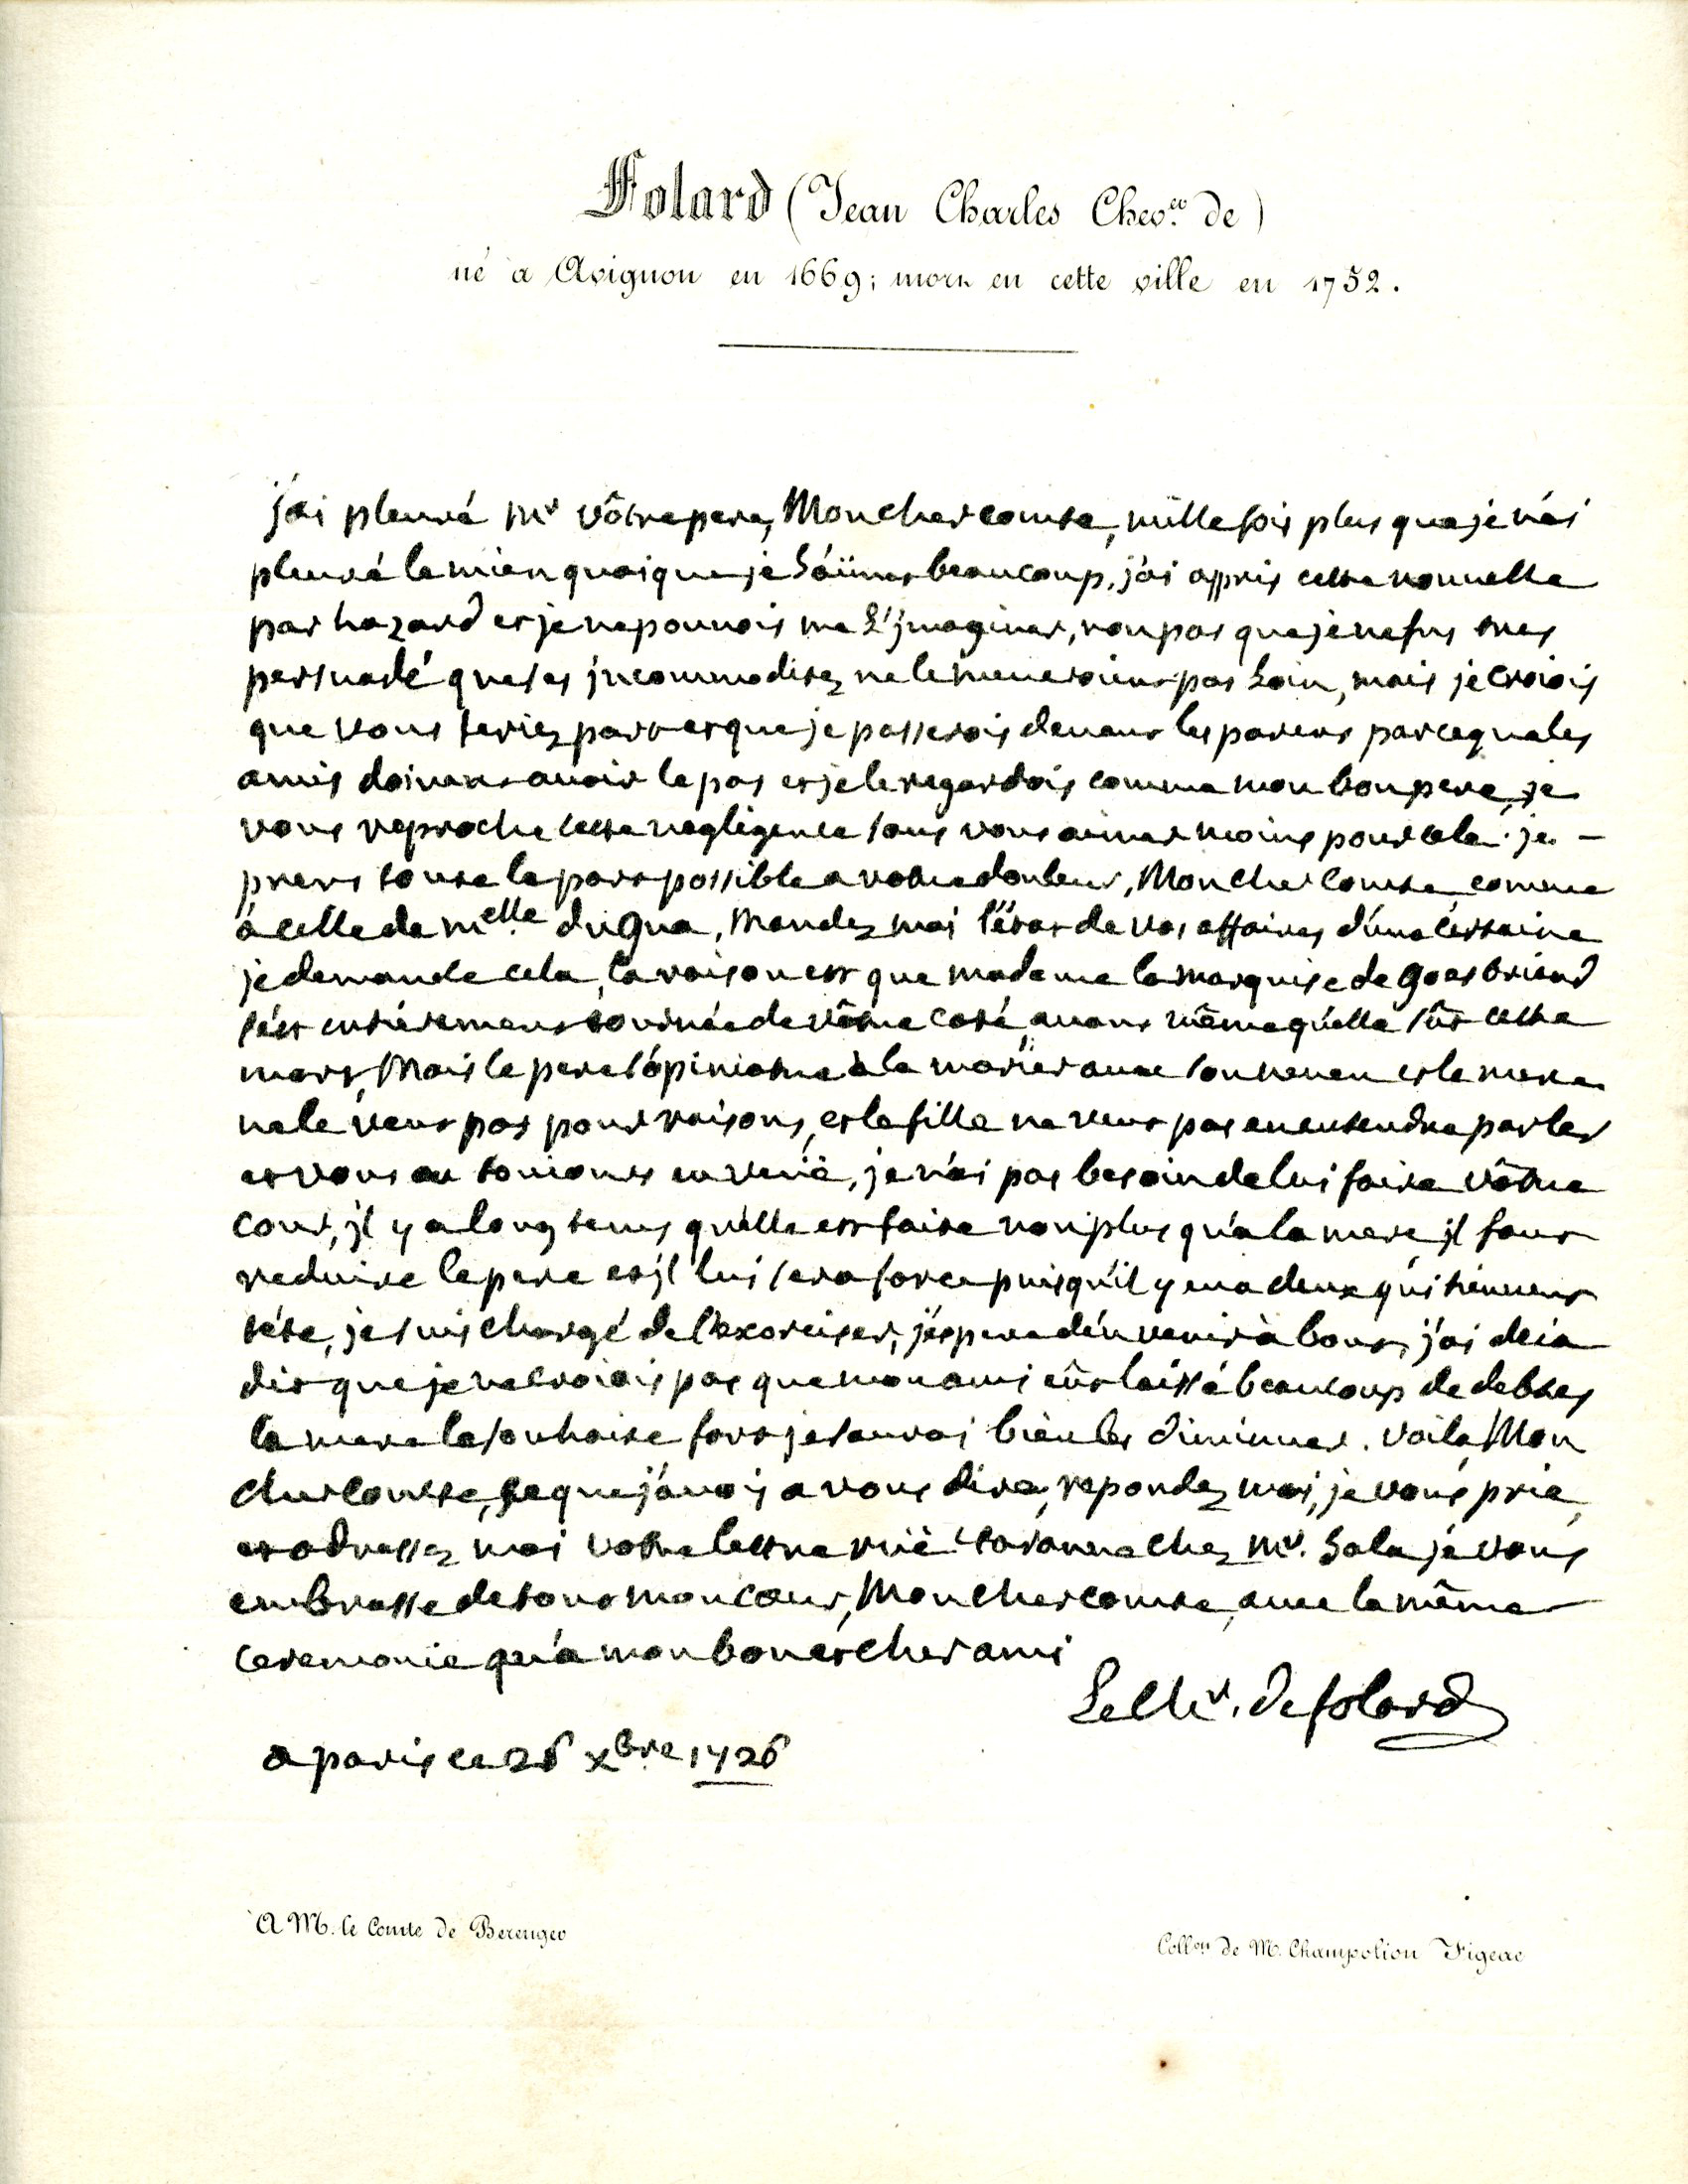 Folard (Jean Charles Chev.er de)
né à Avignon en 1669; mort en cette ville en 1752.
j'ai pleuré Mr vôtre pere, Mon cher comte, mille fois plus que je n'ai
pleuré le mien quoique je l'aimes beaucoup. j'ai appris cette nouvelle
par hazard et je ne pouvois me l'jmaginer, non pas que je ne fus tres
persuadé que ses jncommoditez ne le meneroient pas loin, mais je croiois
que vous seriez part et que je passerois devant les parens parceque les
amis doivent avoir le pas et je le regardois comme mon bon pere, je
vous reproche cette negligence sans vous aimer moins pour cela. je
prens toute la part possible a votre douleur, Mon Cher Comte comme
à celle de Melle du Gua, Mandez moi l'état de vos affaires d'une certaine
je demande cela, la raison est que madame la marquise de Goesbriand
s'ést entierement tournée de vôtre coté avant même qu'elle sût cette
mort, Mais le pere s'opiniatre à la marier avec son neveu et la mere
ne le veut pas pour raisons, et la fille ne veut pas en entendre parler
et vous en toujours en venië, je n'ai pas besoin de lui faire vôtre
cour, jl y a long tems qu'elle est faite non plus qu'a la mere, jl faut
reduire le pere et jl lui sera force puisqu'il y en a deux qui tiennent
téte, je suis chargé de l'exorciser, j'éspere d'én venir à bout, j'ai deia
dit que je ne croiois pas que mon ami eût laissé beaucoup de debtes
la mere le souhaite fort je saurai bien les diminuer. Voila, Mon
cher Comte, ce que j'avois a vous dire, repondez moi, je vous prie,
et adressez moi votre lettre ruë chez Mr. Sala je vous
embrasse de tout mon cœur, Mon cher comte, avec la même
ceremonie qu'a mon bon et cher ami
Le Chr. de folard
a paris ce 26 xbre 1726
A M. le Comte de Berenger
Coll.on de M. Champolion Figeac